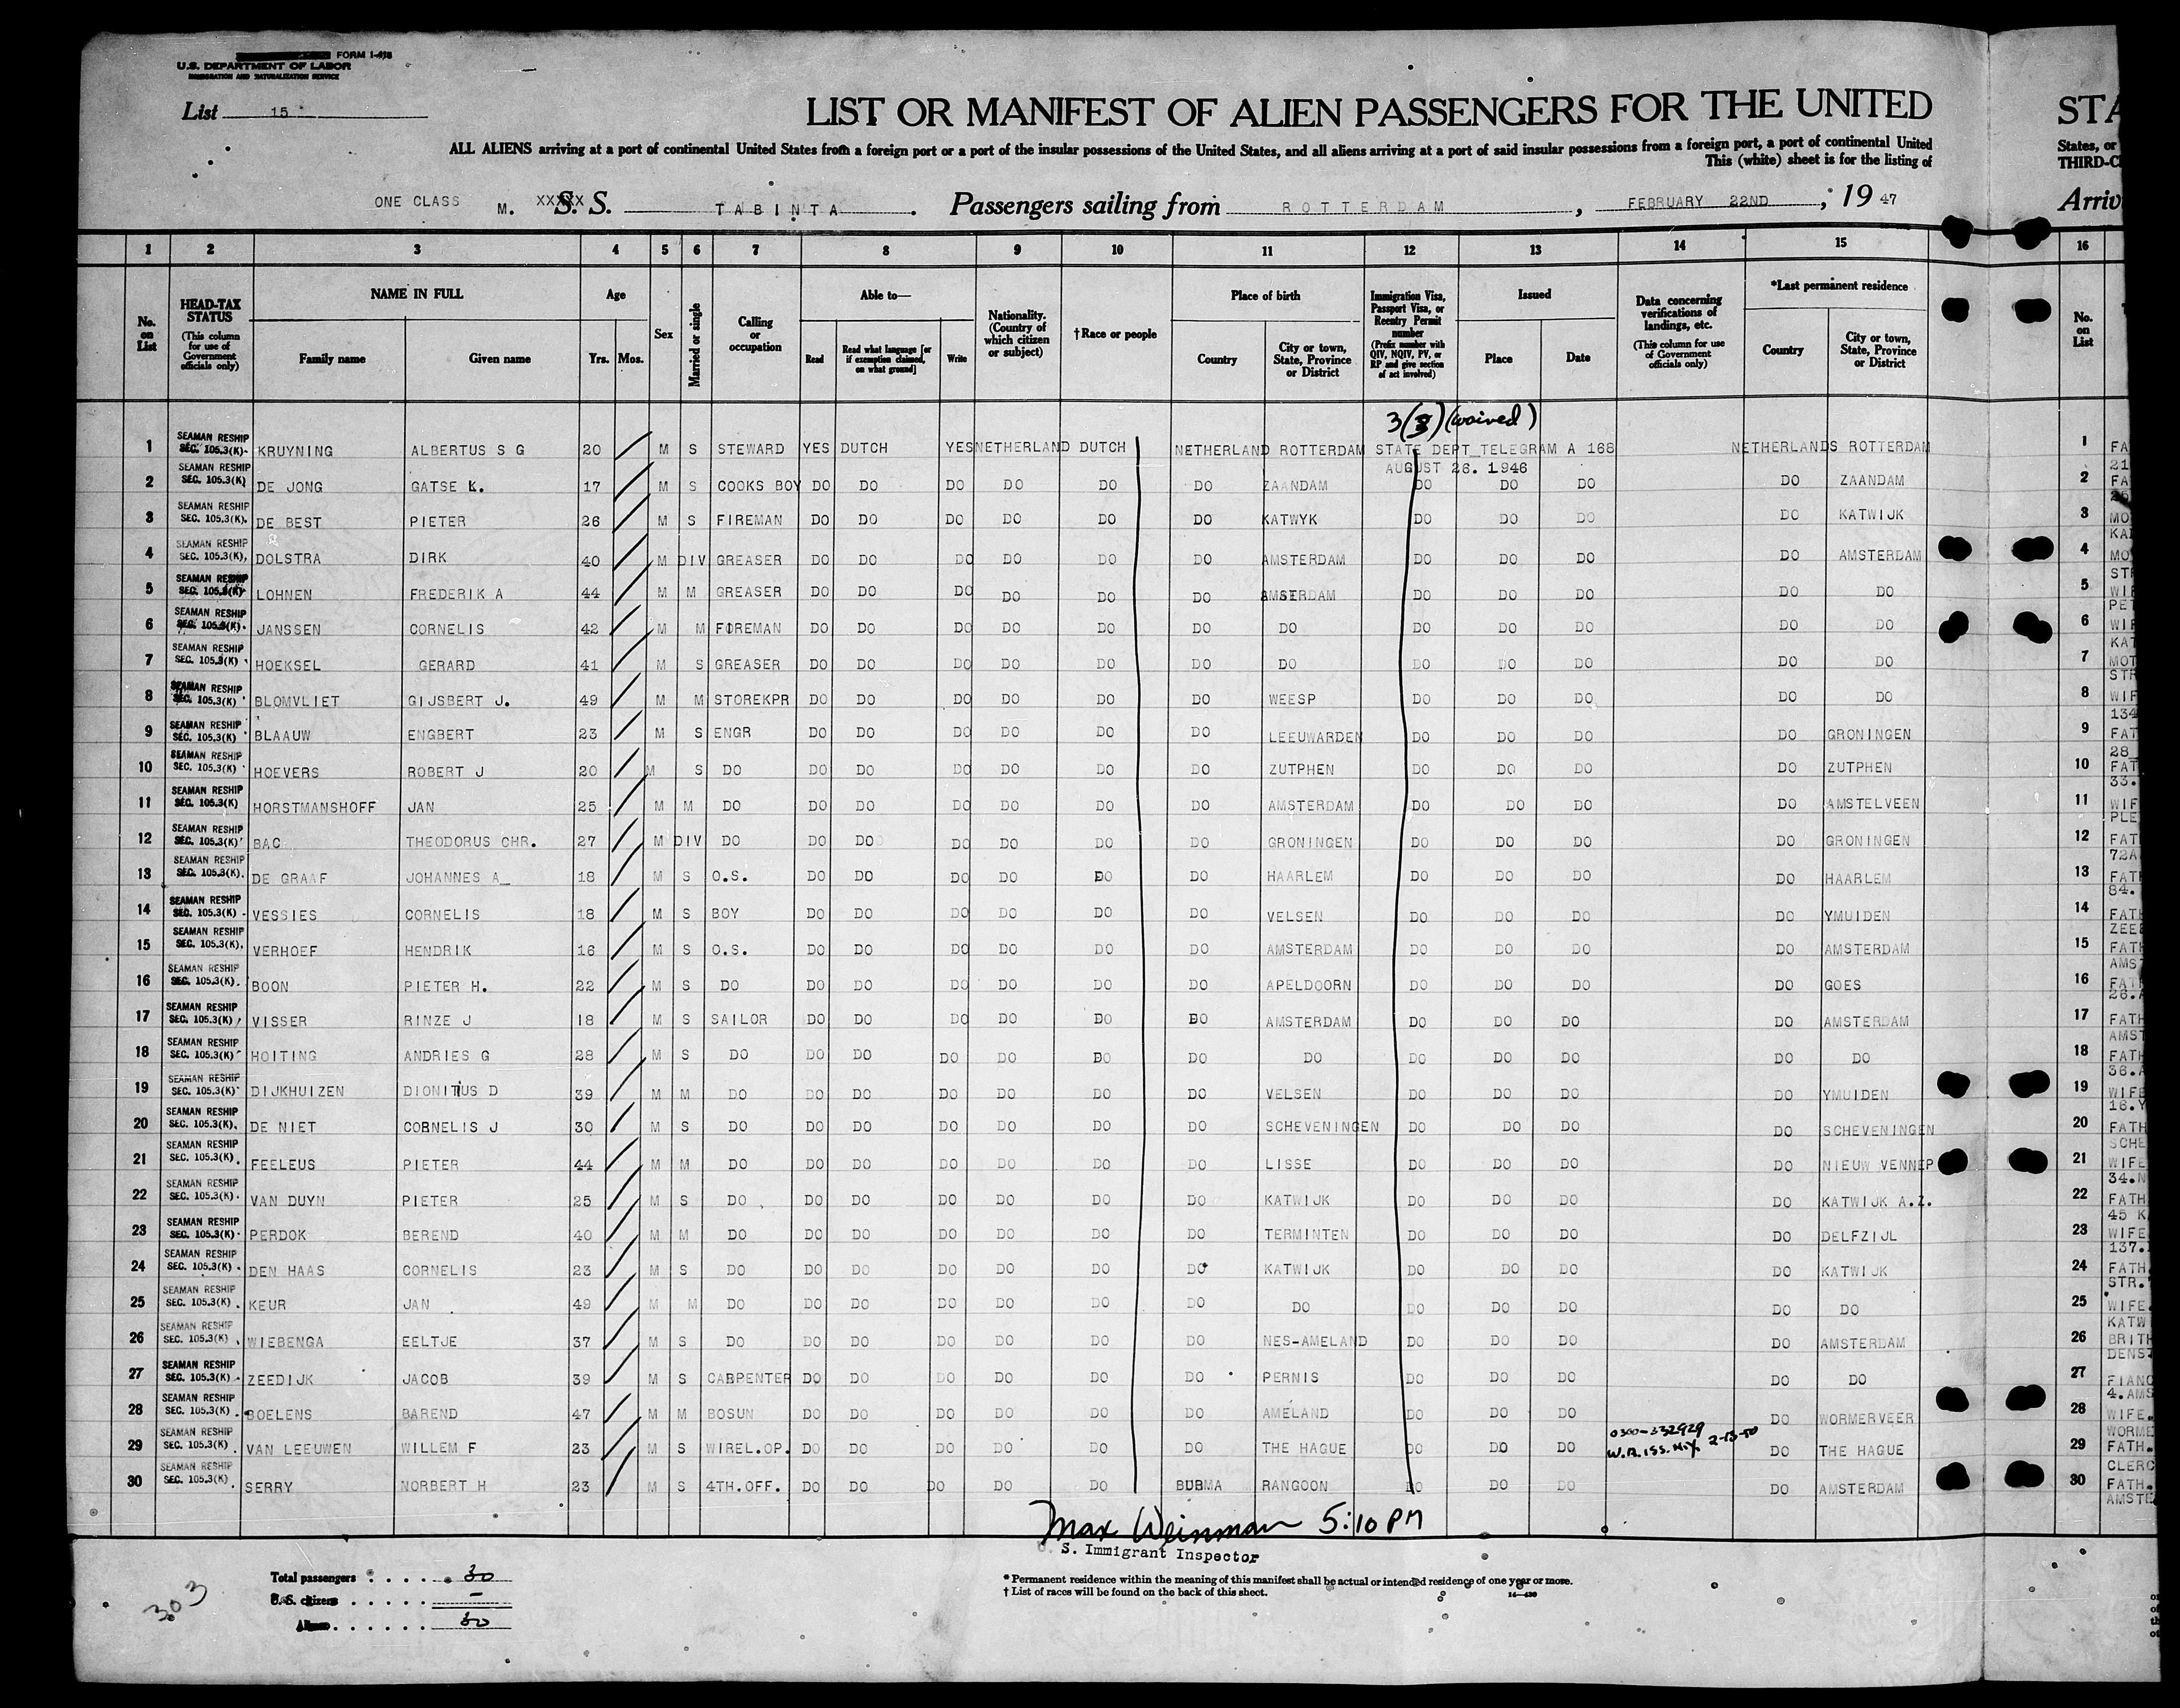 FORM I-418
U.S. DEPARTMENT OF LABOR
IMMIGRATION AND NATURALIZATION SERVICE
List 15
LIST OR MANIFEST OF ALIEN PASSENGERS FOR THE UNITED STA
ALL ALIENS arriving at a port of continental United States from a foreign port or a port of the insular possessions of the United States, and all aliens arriving at a port of said insular possessions from a foreign port, a port of continental United States, or
This (white) sheet is for the listing of THIRD-C
ONE CLASS M. XXXXX S. S. TABINTA. Passengers sailing from ROTTERDAM, FEBRUARY 22ND; 19 47 Arriv
1 2 3 4 5 6 7 8 9 10 11 12 13 14 15 16
No. on List
HEAD-TAX STATUS (This column for use of Government officials only)
NAME IN FULL Family name Given name
Age Yrs. Mos.
Sex
Married or single
Calling or occupation
Able to— Read Read what language [or if exemption claimed, on what ground] Write
Nationality. (Country of which citizen or subject)
†Race or people
Place of birth Country City or town, State, Province or District
Immigration Visa, Passport Visa, or Reentry Permit number (Prefix number with QIV, NQIV, PV, or RP and give section of act involved)
Issued Place Date
Data concerning verifications of landings, etc. (This column for use of Government officials only)
*Last permanent residence Country City or town, State, Province or District
No. on List
3(3) (waived)
1 SEAMAN RESHIP SEC. 105.3(K). KRUYNING ALBERTUS S G 20 M S STEWARD YES DUTCH YES NETHERLAND DUTCH NETHERLAND ROTTERDAM STATE DEPT TELEGRAM A 168 NETHERLANDS ROTTERDAM 1 FA
AUGUST 26. 1946 21
2 SEAMAN RESHIP SEC. 105.3(K) DE JONG GATSE K. 17 M S COOKS BOY DO DO DO DO DO DO ZAANDAM DO DO DO DO ZAANDAM 2 FA
3 SEAMAN RESHIP SEC. 105.3(K). DE BEST PIETER 26 M S FIREMAN DO DO DO DO DO DO KATWYK DO DO DO DO KATWIJK 3 MO
4 SEAMAN RESHIP SEC. 105.3(K), DOLSTRA DIRK 40 M DIV GREASER DO DO DO DO DO DO AMSTERDAM DO DO DO DO AMSTERDAM 4 MO
5 SEAMAN RESHIP SEC. 105.3(K) LOHNEN FREDERIK A 44 M M GREASER DO DO DO DO DO DO AMSERDAM DO DO DO DO DO 5 WIF
6 SEAMAN RESHIP SEC. 105.3(K). JANSSEN CORNELIS 42 M M FOREMAN DO DO DO DO DO DO DO DO DO DO DO DO 6 WIF
7 SEAMAN RESHIP SEC. 105.3(K) HOEKSEL GERARD 41 M S GREASER DO DO DO DO DO DO DO DO DO DO DO DO 7 MOT
8 SEAMAN RESHIP SEC. 105.3(K) BLOMVLIET GIJSBERT J. 49 M M STOREKPR DO DO DO DO DO DO WEESP DO DO DO DO DO 8 WIF
134
9 SEAMAN RESHIP SEC. 105.3(K) BLAAUW ENGBERT 23 M S ENGR DO DO DO DO DO DO LEEUWARDEN DO DO DO DO GRONINGEN 9 FAT
28
10 SEAMAN RESHIP SEC. 105.3(K) HOEVERS ROBERT J 20 M S DO DO DO DO DO DO DO ZUTPHEN DO DO DO DO ZUTPHEN 10 FAT
33.
11 SEAMAN RESHIP SEC. 105.3(K) HORSTMANSHOFF JAN 25 M M DO DO DO DO DO DO DO AMSTERDAM DO DO DO DO AMSTELVEEN 11 WIF
PLE
12 SEAMAN RESHIP SEC. 105.3(K) BAC THEODORUS CHR. 27 M DIV DO DO DO DO DO DO DO GRONINGEN DO DO DO DO GRONINGEN 12 FAT
72A
13 SEAMAN RESHIP SEC. 105.3(K). DE GRAAF JOHANNES A_ 18 M S O.S. DO DO DO DO DO DO HAARLEM DO DO DO DO HAARLEM 13 FAT
84.
14 SEAMAN RESHIP SEC. 105.3(K). VESSIES CORNELIS 18 M S BOY DO DO DO DO DO DO VELSEN DO DO DO DO YMUIDEN 14 FAT
ZEE
15 SEAMAN RESHIP SEC. 105.3(K). VERHOEF HENDRIK 16 M S O.S. DO DO DO DO DO DO AMSTERDAM DO DO DO DO AMSTERDAM 15 FATH
AMS
16 SEAMAN RESHIP SEC. 105.3(K). BOON PIETER H. 22 M S DO DO DO DO DO DO DO APELDOORN DO DO DO DO GOES 16 FAT
26.A
17 SEAMAN RESHIP SEC. 105.3(K) VISSER RINZE J 18 M S SAILOR DO DO DO DO DO DO AMSTERDAM DO DO DO DO AMSTERDAM 17 FATH
AMST
18 SEAMAN RESHIP SEC. 105.3(K) HOITING ANDRIES G 28 M S DO DO DO DO DO DO DO DO DO DO DO DO DO 18 FATH
36.A
19 SEAMAN RESHIP SEC. 105.3(K) DIJKHUIZEN DIONITIUS D 39 M M DO DO DO DO DO DO DO VELSEN DO DO DO DO YMUIDEN 19 WIFE
16.Y
20 SEAMAN RESHIP SEC. 105.3(K). DE NIET CORNELIS J 30 M S DO DO DO DO DO DO DO SCHEVENINGEN DO DO DO DO SCHEVENINGEN 20 FATH
SCHE
21 SEAMAN RESHIP SEC. 105.3(K). FEELEUS PIETER 44 M M DO DO DO DO DO DO DO LISSE DO DO DO DO NIEUW VENNEP 21 WIFE
34.N
22 SEAMAN RESHIP SEC. 105.3(K). VAN DUYN PIETER 25 M S DO DO DO DO DO DO DO KATWIJK DO DO DO DO KATWIJK A.Z. 22 FATH
45 K
23 SEAMAN RESHIP SEC. 105.3(K). PERDOK BEREND 40 M M DO DO DO DO DO DO DO TERMINTEN DO DO DO DO DELFZIJL 23 WIFE
137.
24 SEAMAN RESHIP SEC. 105.3(K). DEN HAAS CORNELIS 23 M S DO DO DO DO DO DO DO KATWIJK DO DO DO DO KATWIJK 24 FATH
STR.
25 SEAMAN RESHIP SEC. 105.3(K). KEUR JAN 49 M M DO DO DO DO DO DO DO DO DO DO DO DO DO 25 WIFE.
KATW
26 SEAMAN RESHIP SEC. 105.3(K) WIEBENGA EELTJE 37 M S DO DO DO DO DO DO DO NES-AMELAND DO DO DO DO AMSTERDAM 26 BRITH
DENS
27 SEAMAN RESHIP SEC. 105.3(K). ZEEDIJK JACOB 39 M S CARPENTER DO DO DO DO DO DO PERNIS DO DO DO DO DO 27 FIANC
4.AMS
28 SEAMAN RESHIP SEC. 105.3(K). BOELENS BAREND 47 M M BOSUN DO DO DO DO DO DO AMELAND DO DO DO DO WORMERVEER 28 WIFE.
0300-332929 WORME
29 SEAMAN RESHIP SEC. 105.3(K). VAN LEEUWEN WILLEM F 23 M S WIREL.OP. DO DO DO DO DO DO THE HAGUE DO DO DO W.R. ISS. N.Y. 2-13-50 DO THE HAGUE 29 FATH.
CLERC
30 SEAMAN RESHIP SEC. 105.3(K). SERRY NORBERT H 23 M S 4TH.OFF. DO DO DO DO DO BURMA RANGOON DO DO DO DO AMSTERDAM 30 FATH.
AMSTE
Max Weinman 5:10 PM
S. Immigrant Inspector
Total passengers 30
U.S. citizens —
Aliens 30
303
* Permanent residence within the meaning of this manifest shall be actual or intended residence of one year or more.
† List of races will be found on the back of this sheet.